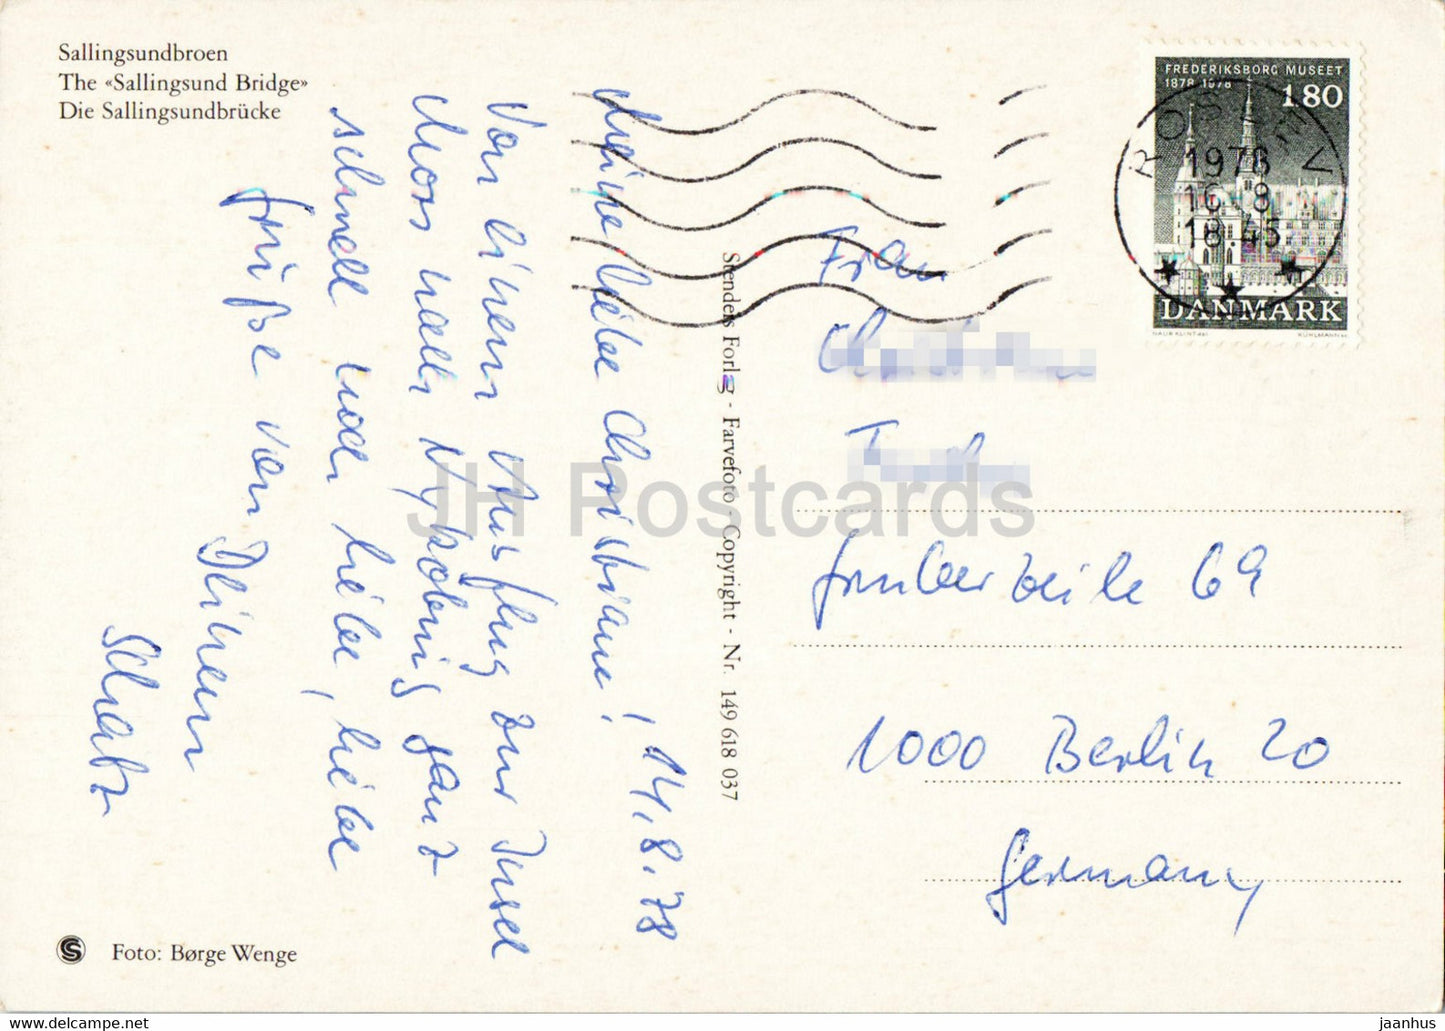 Sallingsundbroen
The «Sallingsund Bridge»
Die Sallingsundbrücke
Meine liebe Christiane! 14.8.78
Von einem Ausflug zur Insel
Mors nach Nykøbing ganz
schnell noch liebe, liebe
Grüße von Deinem
Schatz
Foto: Børge Wenge
Stenders Forlag - Farvefoto - Copyright - Nr. 149 618 037
FREDERIKSBORG MUSEET
1878 1978
180
DANMARK
1978
16.8
18.45
Frau
69
1000 Berlin 20
Germany
JH Postcards
jaanhus @ delcampe.net